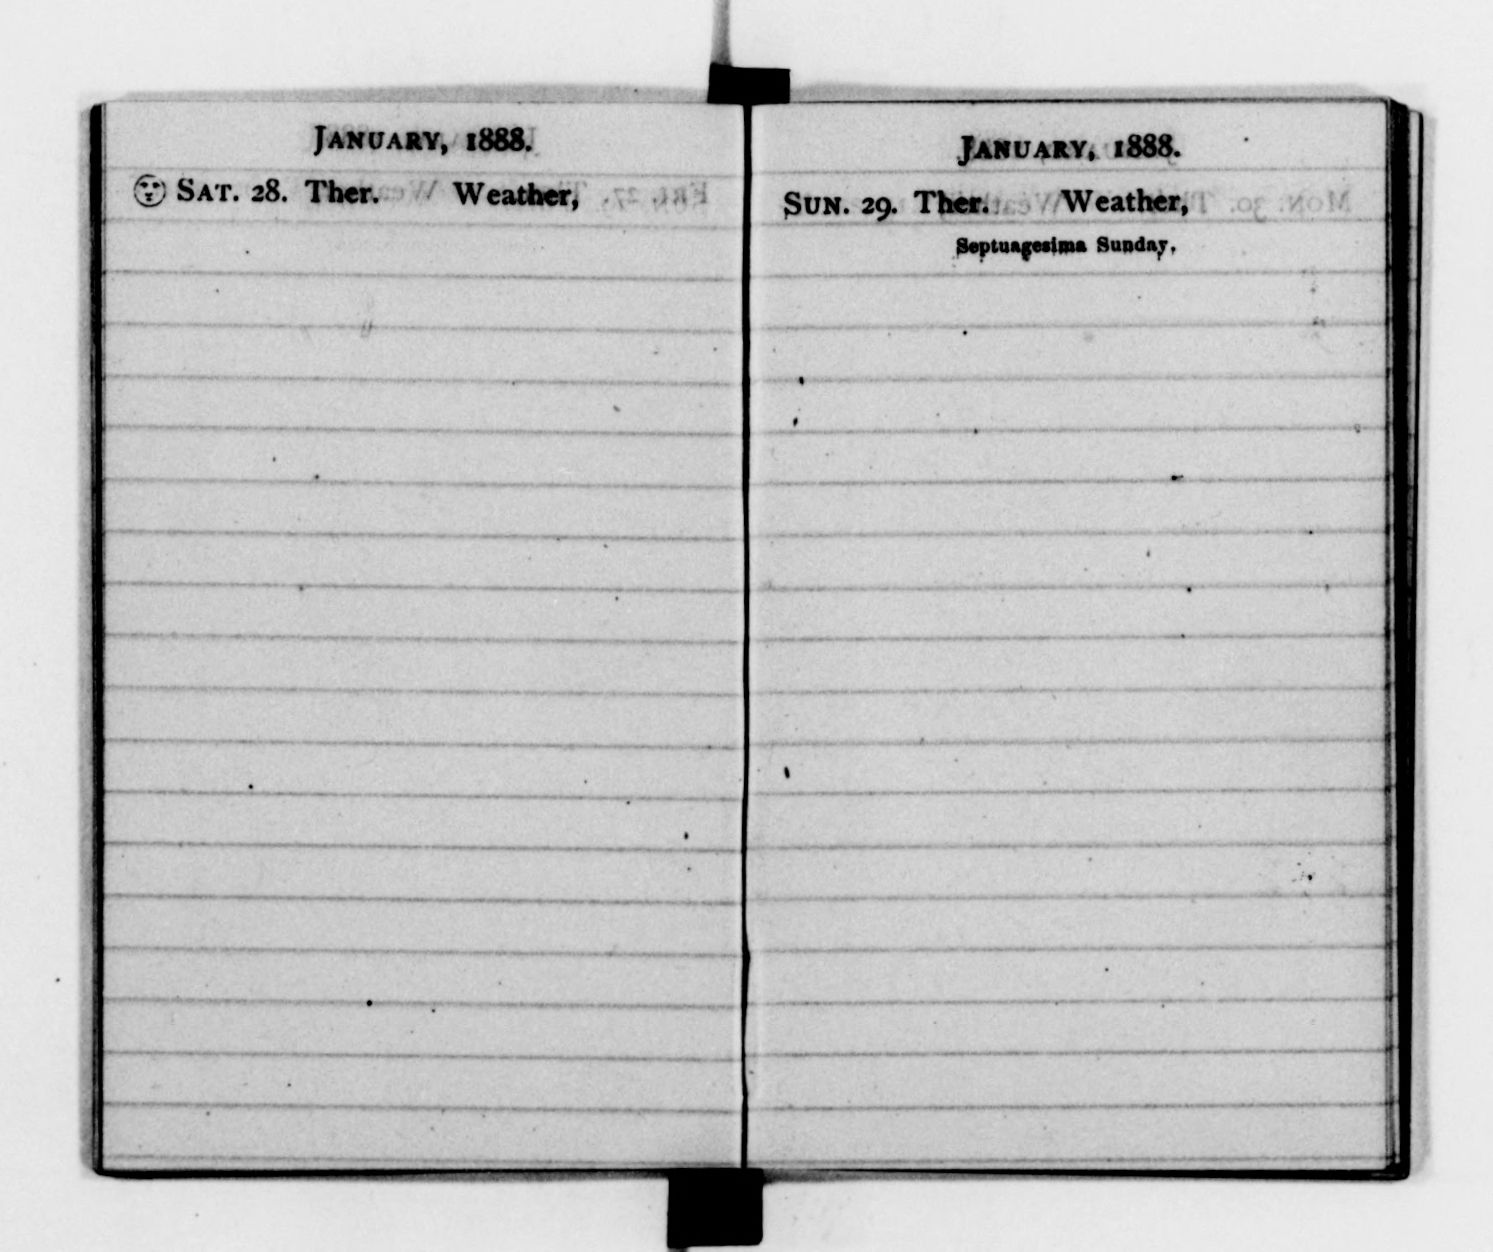 JANUARY, 1888.
SAT. 28. Ther. Weather,
JANUARY, 1888.
SUN. 29. Ther. Weather,
Septuagesima Sunday.